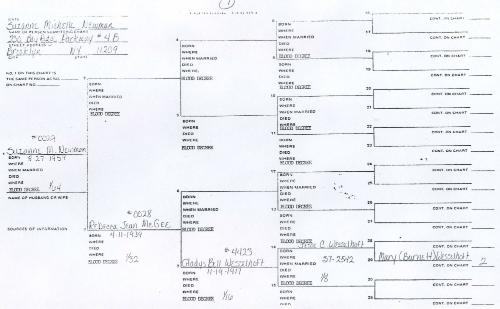 1
Suzanne Michelle Newman
NAME OF PERSON SUBMITTING CHART
STREET ADDRESS
Brooklyn NY 11209
CITY STATE
NO. 1 ON THIS CHART IS
THE SAME PERSON AS NO.
ON CHART NO.
#0029
Suzanne M. Newman
BORN 8-27-1959
WHERE
WHEN MARRIED
DIED
WHERE
BLOOD DEGREE 1/64
NAME OF HUSBAND OR WIFE
SOURCES OF INFORMATION
2
BORN
WHERE
WHEN MARRIED
DIED
WHERE
BLOOD DEGREE
#0028
Rebecca Jean McGee
BORN 4-11-1939
WHERE
DIED
WHERE
BLOOD DEGREE 1/32
4
BORN
WHERE
WHEN MARRIED
DIED
WHERE
BLOOD DEGREE
5
BORN
WHERE
DIED
WHERE
BLOOD DEGREE
6
BORN
WHERE
WHEN MARRIED
DIED
WHERE
BLOOD DEGREE
#4425
7
Gladys Bell Wesselhoft
BORN 11-19-1917
WHERE
DIED
WHERE
BLOOD DEGREE 1/16
8
BORN
WHERE
WHEN MARRIED
DIED
WHERE
BLOOD DEGREE
9
BORN
WHERE
DIED
WHERE
BLOOD DEGREE
10
BORN
WHERE
WHEN MARRIED
DIED
WHERE
BLOOD DEGREE
11
BORN
WHERE
DIED
WHERE
BLOOD DEGREE
12
BORN
WHERE
WHEN MARRIED
DIED
WHERE
BLOOD DEGREE
13
BORN
WHERE
DIED
WHERE
BLOOD DEGREE
14
Jesse C. Wesselhoft
BORN
WHERE
WHEN MARRIED 57-2542
DIED
WHERE 1/8
BLOOD DEGREE
15
BORN
WHERE
DIED
WHERE
16
CONT. ON CHART
17
CONT. ON CHART
18
CONT. ON CHART
19
CONT. ON CHART
20
CONT. ON CHART
21
CONT. ON CHART
22
CONT. ON CHART
23
CONT. ON CHART
24
CONT. ON CHART
25
CONT. ON CHART
26
CONT. ON CHART
27
CONT. ON CHART
28
CONT. ON CHART
29
Mary (Burnett) Wesselhoft 2
CONT. ON CHART
30
CONT. ON CHART